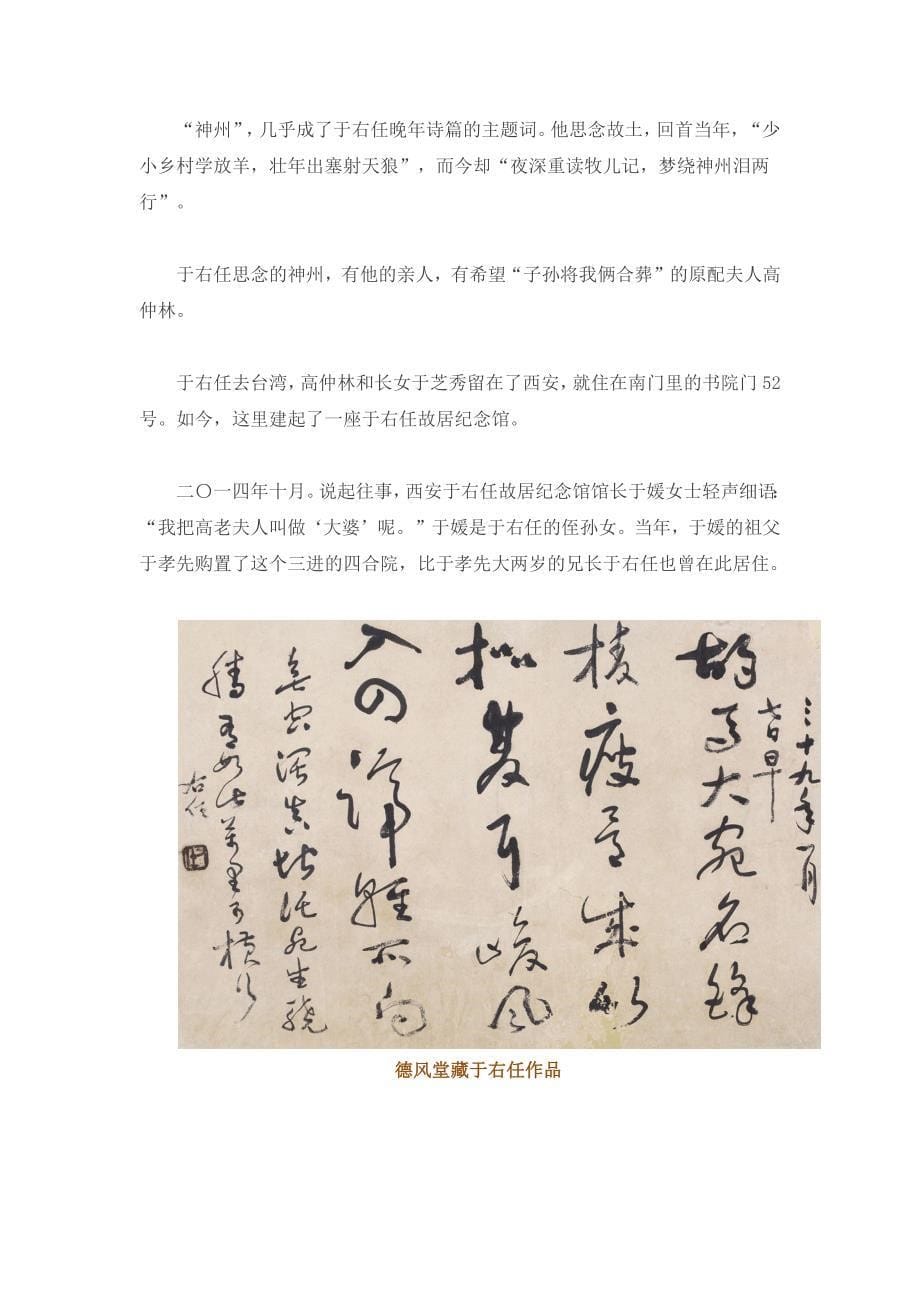 “神州”,几乎成了于右任晚年诗篇的主题词。他思念故土,回首当年,“少
小乡村学放羊,壮年出塞射天狼”,而今却“夜深重读牧儿记,梦绕神州泪两
行”。
于右任思念的神州,有他的亲人,有希望“子孙将我俩合葬”的原配夫人高
仲林。
于右任去台湾,高仲林和长女于芝秀留在了西安,就住在南门里的书院门 52
号。如今,这里建起了一座于右任故居纪念馆。
二〇一四年十月。说起往事,西安于右任故居纪念馆馆长于媛女士轻声细语:
“我把高老夫人叫做‘大婆’呢。”于媛是于右任的侄孙女。当年,于媛的祖父
于孝先购置了这个三进的四合院,比于孝先大两岁的兄长于右任也曾在此居住。
三十九年一月
七日早
胡馬大宛名鋒
棱瘦骨成竹
批雙耳峻風
入四蹄輕所向
無空闊真堪託死生驍
騰有如此萬里可橫行
右任
德风堂藏于右任作品